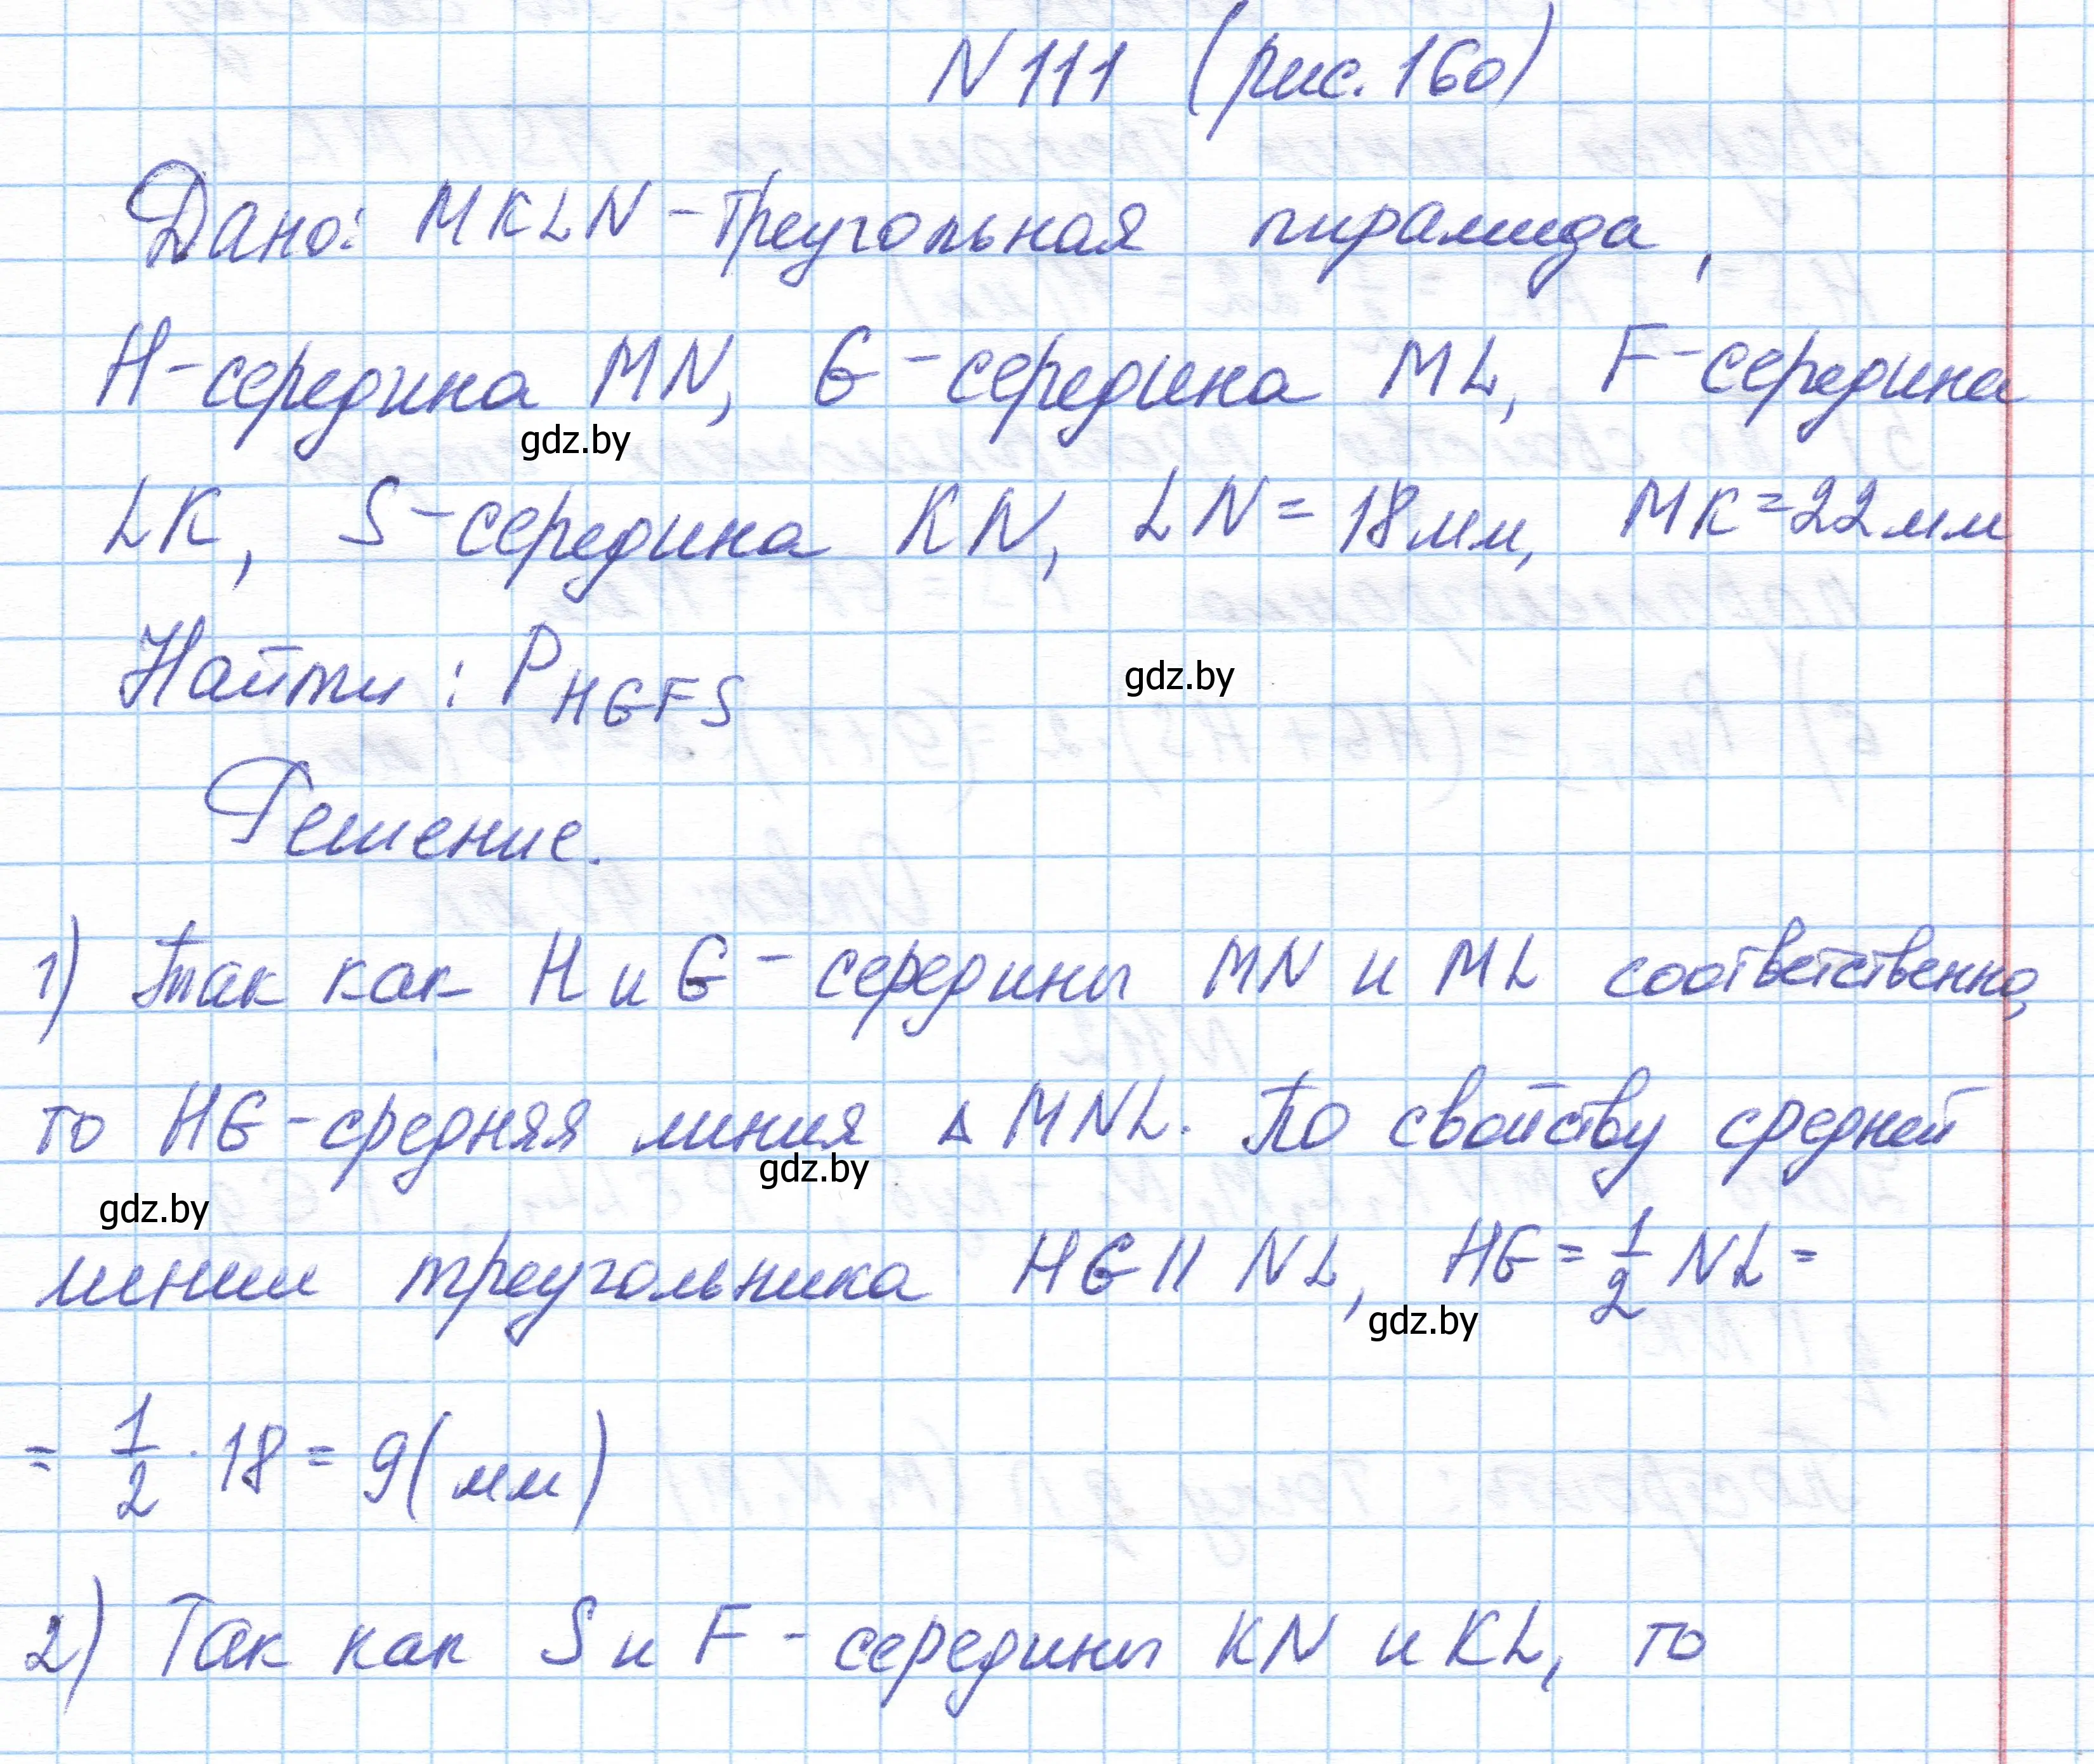 N 111 (рис. 160)
Дано: MKLN - треугольная пирамида,
H - середина MN, G - середина ML, F - середина
gdz.by
LK, S - середина KN, LN = 18 мм, MK = 22 мм
Найти: P HGFS
gdz.by
Решение.
1) Так как H и G - середины MN и ML соответственно,
то HG - средняя линия Δ MNL. По свойству средней
gdz.by
gdz.by
линии треугольника HG || NL, HG = 1/2 NL =
gdz.by
= 1/2 · 18 = 9 (мм)
2) Так как S и F - середины KN и KL, то